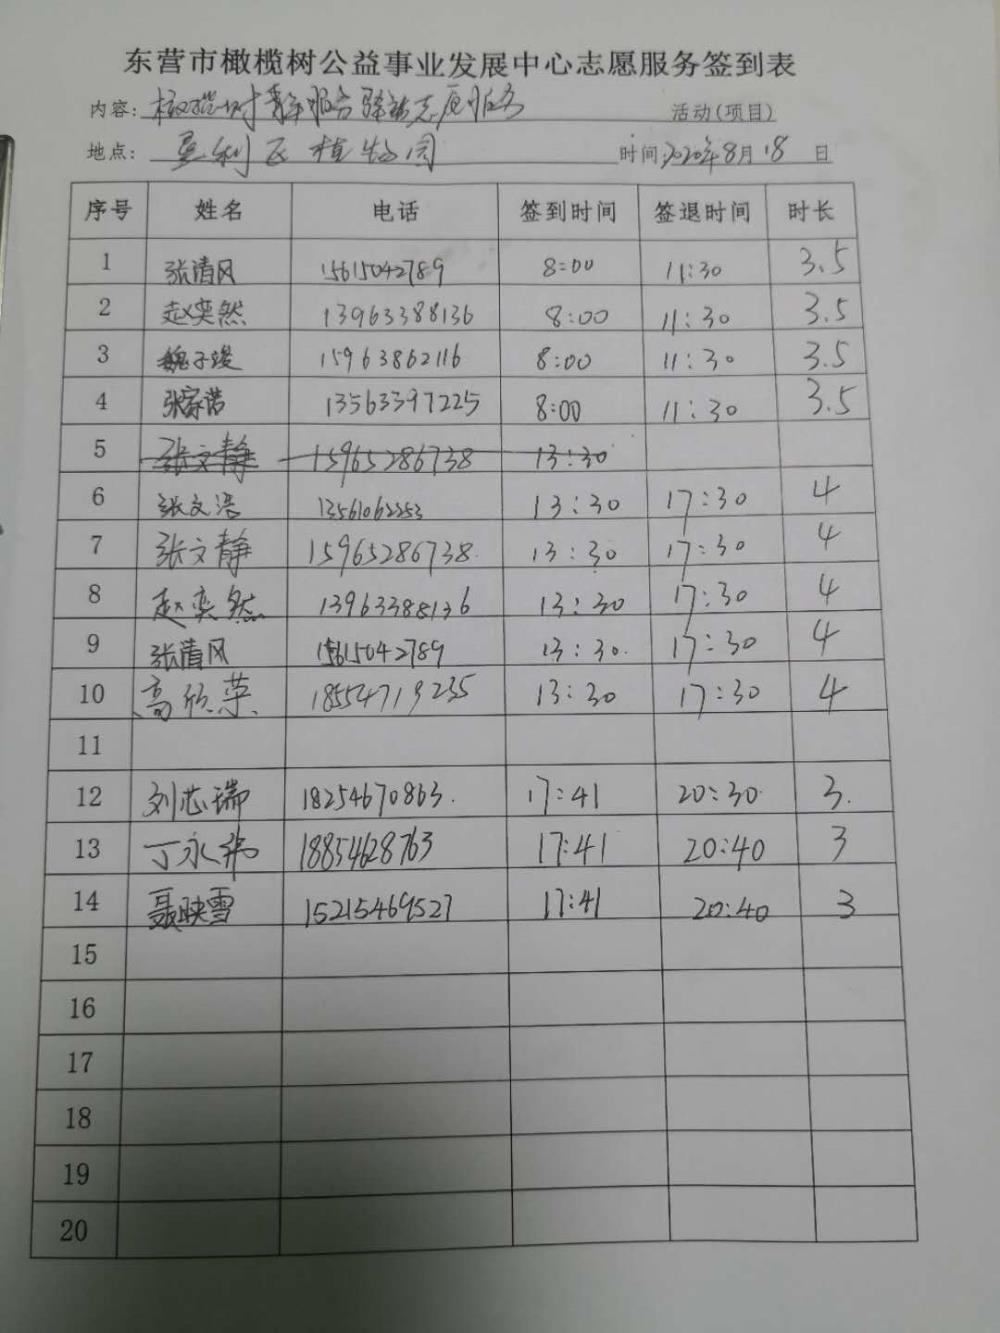 东营市橄榄树公益事业发展中心志愿服务签到表
内容: 橄榄树青年服务驿站志愿服务 活动(项目)
地点: 垦利区植物园 时间:2020年8月18日
序号 姓名 电话 签到时间 签退时间 时长
1 张清风 15615042789 8:00 11:30 3.5
2 赵奕然 13963388136 8:00 11:30 3.5
3 魏子竣 15963862116 8:00 11:30 3.5
4 张家诺 13563397225 8:00 11:30 3.5
5 张文静 15965286738 13:30
6 张文浩 13561062253 13:30 17:30 4
7 张文静 15965286738. 13:30 17:30 4
8 赵奕然 13963388136 13:30 17:30 4
9 张清风 15615042789 13:30. 17:30 4
10 高欣荣 18554719235 13:30 17:30 4
11
12 刘芯瑞 18254670863. 17:41 20:30 3.
13 丁永 18854628763 17:41 20:40 3
14 聂映雪 15215469527 17:41 20:40 3
15
16
17
18
19
20